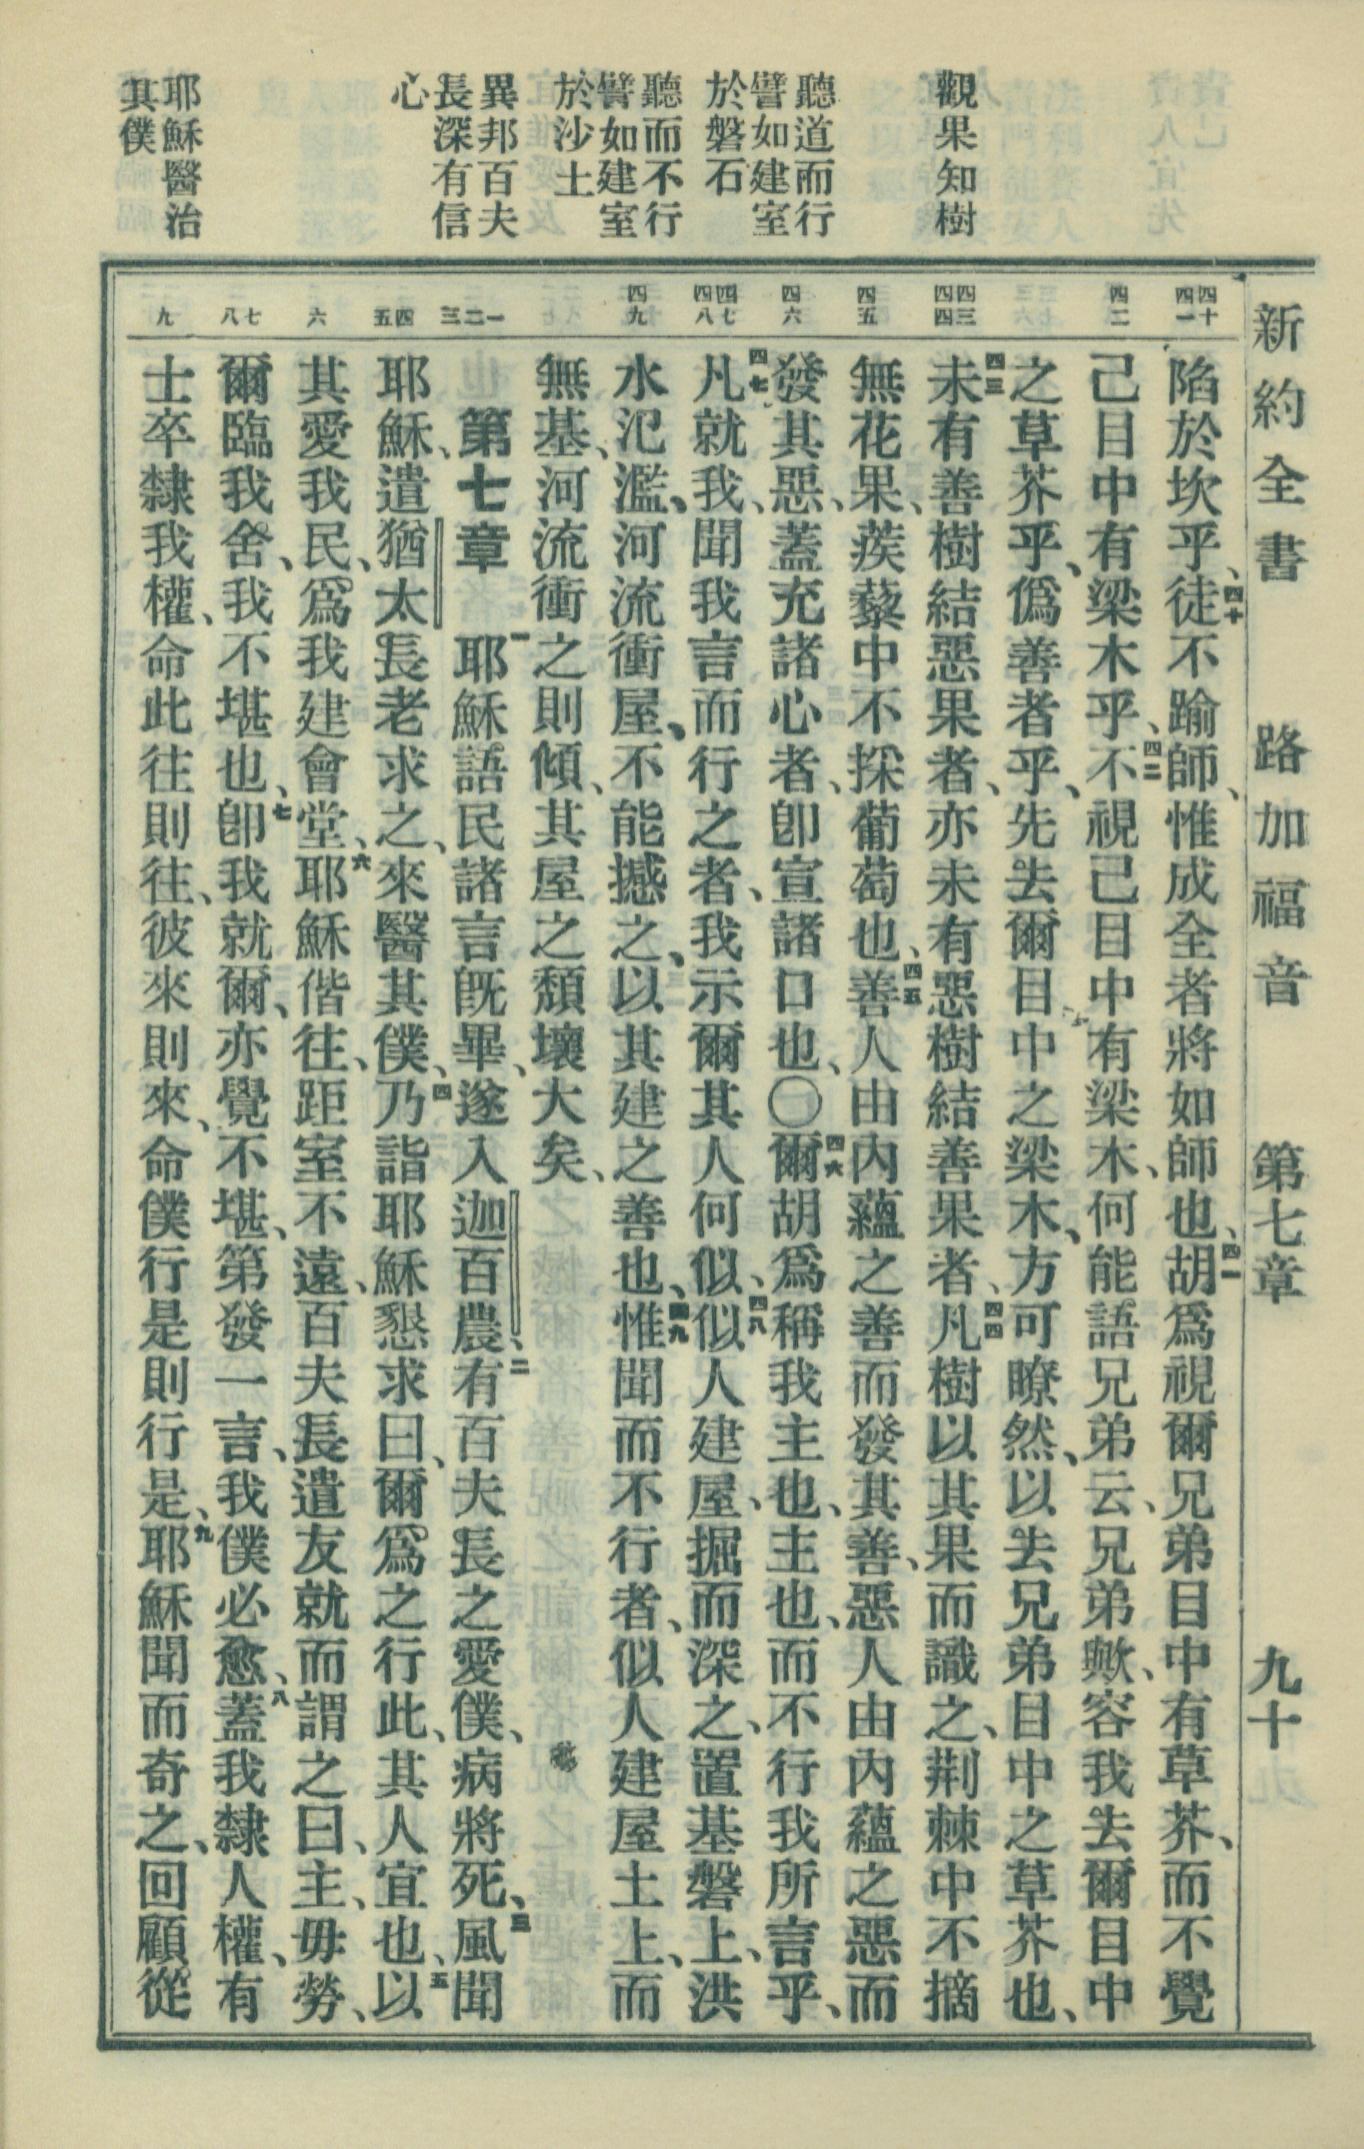 新約全書 路加福音 第七章 九十
觀果知樹
聽道而行
譬如建室
於磐石
聽而不行
譬如建室
於沙土
異邦百夫
長深有信
心
耶穌醫治
其僕
四十 四一
四二
四三 四四
四五
四六
四七 四八
四九
一 二 三
四 五
六
七 八
九
陷於坎乎、四十徒不踰師、惟成全者將如師也、四一胡爲視爾兄弟目中有草芥、而不覺
己目中有梁木乎、四二不視己目中有梁木、何能語兄弟云、兄弟歟、容我去爾目中
之草芥乎、僞善者乎、先去爾目中之梁木、方可瞭然、以去兄弟目中之草芥也、
四三未有善樹結惡果者、亦未有惡樹結善果者、四四凡樹以其果而識之、荆棘中不摘
無花果、蒺藜中不採葡萄也、四五善人由內蘊之善而發其善、惡人由內蘊之惡而
發其惡、蓋充諸心者、卽宣諸口也、〇四六爾胡爲稱我主也、主也、而不行我所言乎、
四七凡就我、聞我言而行之者、我示爾其人何似、四八似人建屋、掘而深之、置基磐上、洪
水氾濫、河流衝屋、不能撼之、以其建之善也、四九惟聞而不行者、似人建屋土上、而
無基、河流衝之則傾、其屋之頹壞大矣、
第七章 一耶穌語民諸言旣畢、遂入迦百農、二有百夫長之愛僕、病將死、三風聞
耶穌、遣猶太長老求之、來醫其僕、四乃詣耶穌懇求曰、爾爲之行此、其人宜也、五以
其愛我民、爲我建會堂、六耶穌偕往、距室不遠、百夫長遣友就而謂之曰、主、毋勞、
爾臨我舍、我不堪也、七卽我就爾、亦覺不堪、第發一言、我僕必愈、八蓋我隸人權、有
士卒隸我權、命此往則往、彼來則來、命僕行是則行是、九耶穌聞而奇之、回顧從